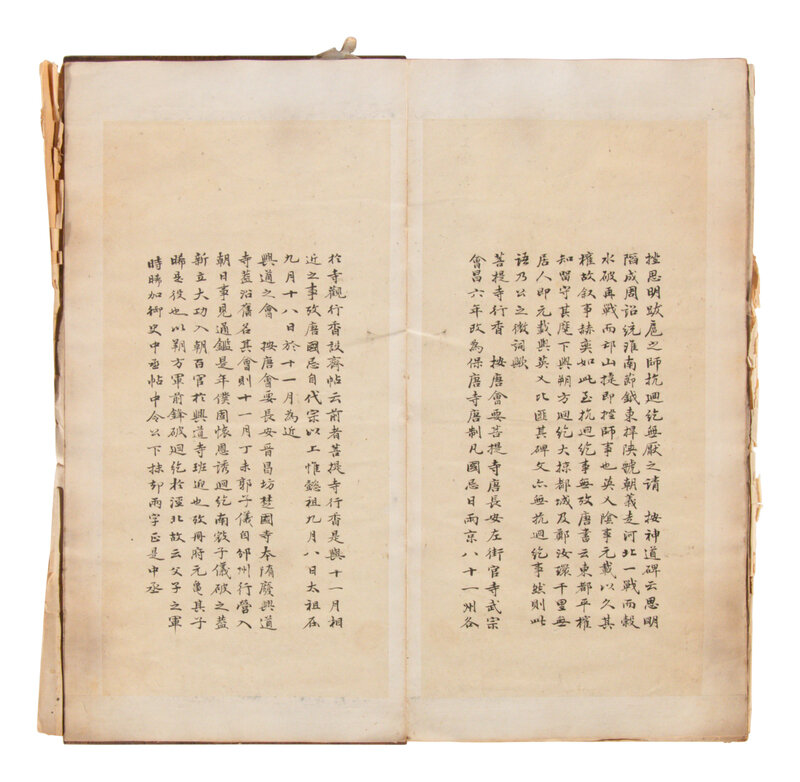 挫思明跋扈之師抗迴紇無厭之請　按神道碑云思明
陷成周詔統淮南節鉞東捍陝虢朝義走河北一戰而穀
水破再戰而邙山捷即挫師事也英乂陰事元載以久其
權故敘事赫奕如此至抗迴紇事無攷唐書云東都平權
知留守其麾下與朔方迴紇大掠都城及鄭汝環千里無
居人即元載與英乂比匪其碑文亦無抗迴紇事然則此
語乃公之微詞歟
菩提寺行香　按唐會要菩提寺唐長安左街官寺武宗
會昌六年改為保唐寺唐制凡國忌日兩京八十一州各
於寺觀行香設齊帖云前者菩提寺行香是與十一月相
近之事攷唐國忌自代宗以上惟懿祖九月八日太祖在
九月十八日於十一月為近
興道之會　按唐會要長安晉昌坊楚國寺本隋廢興道
寺蓋沿舊名其會則十一月丁未郭子儀自邠州行營入
朝日事見通鑑是年僕固懷恩誘迴紇南寇子儀破之蓋
新立大功入朝百官於興道寺班迎也攷冊府元龜其子
晞是役也以朔方軍前鋒破迴紇於涇北故云父子之軍
時晞加御史中丞帖中令公下掠却兩字正是中丞